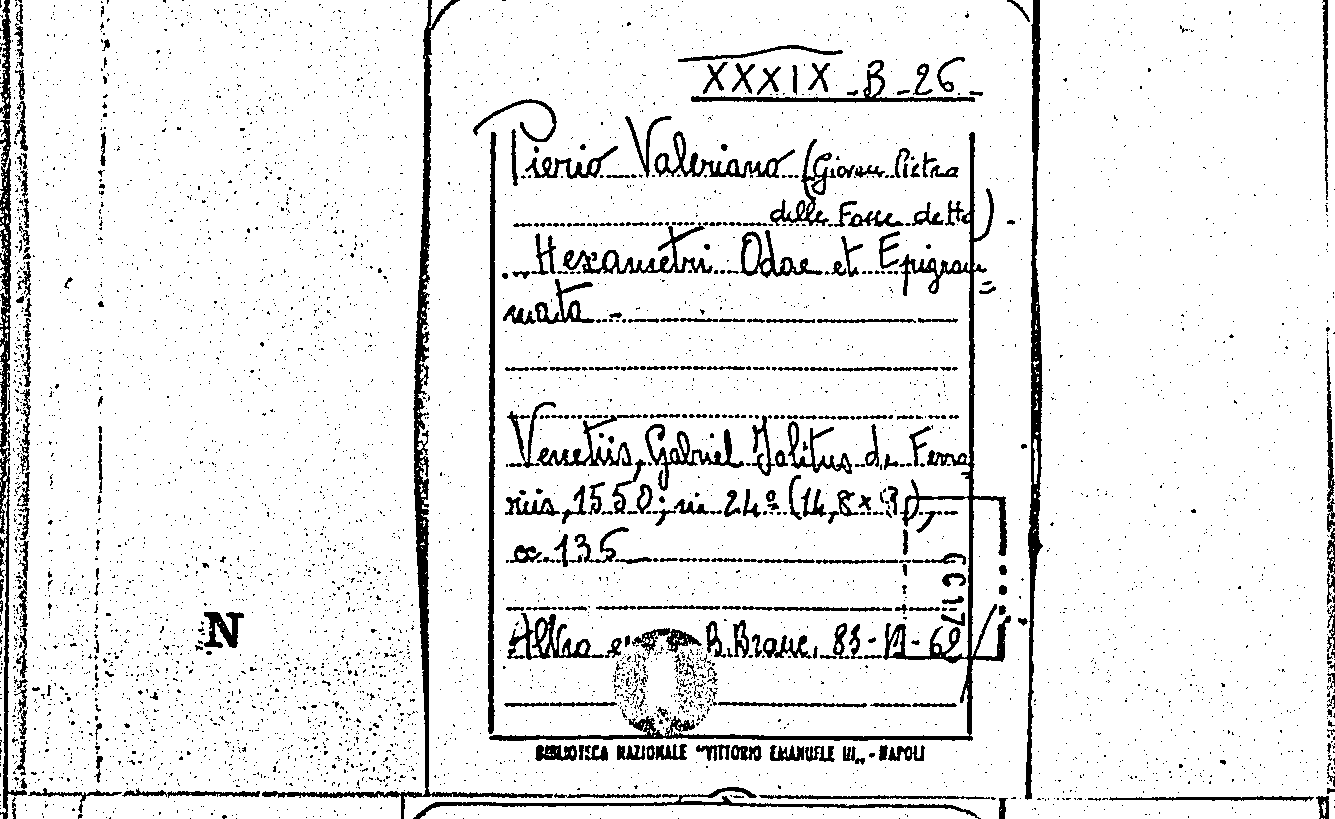 XXXIX-B-26-
Pierio Valeriano (Giovan Pietro
delle Fosse detto).
... Hexametri Odae et Epigram=
mata -
Venetiis, Gabriel Jolitus de Ferra
riis, 1550; in 24º (14,8x9),
cc. 135
CC17
N
Altro es. B. Branc. 83-
BIBLIOTECA NAZIONALE "VITTORIO EMANUELE III„ - NAPOLI